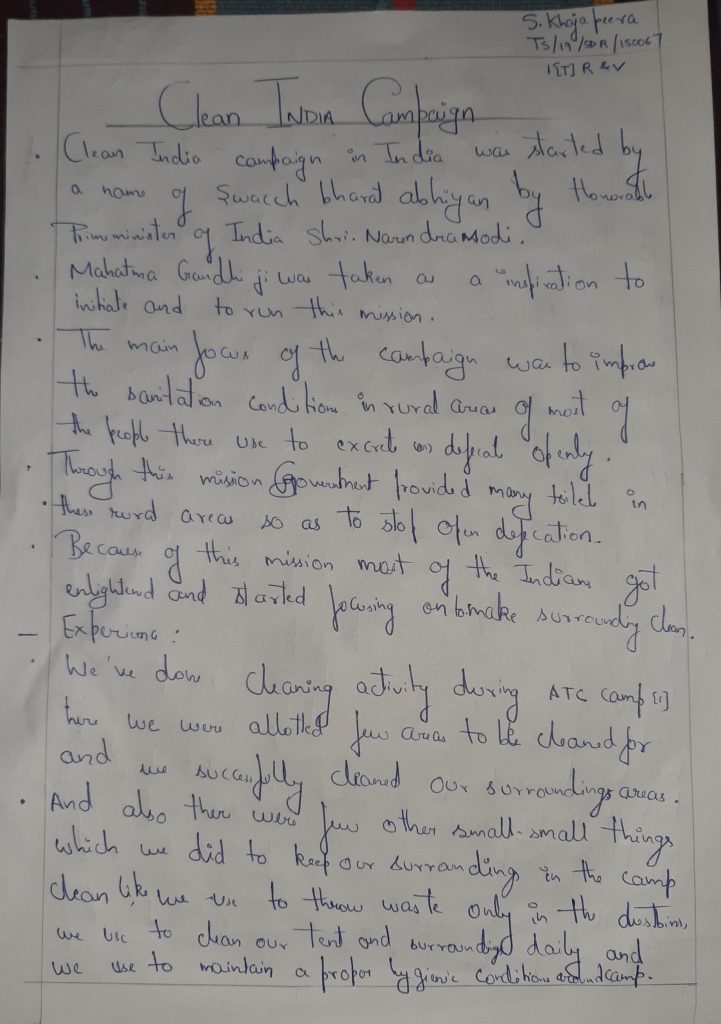 S. Khaja peera
TS/19/SDR/150067
1[T] R & V
Clean INDIA Campaign
. Clean India campaign in India was started by
a name of Swacch bharat abhiyan by Honorable
Primminister of India Shri. Narendra Modi.
. Mahatma Gandhi ji was taken as a inspiration to
initiate and to run this mission.
. The main focus of the campaign was to improve
the sanitation condition in rural areas of most of
the people there use to excrete (or) defecal openly.
. Through this mission Government provided many toilet in
. these rural areas so as to stop open defecation.
. Because of this mission most of the Indians got
enlightend and started focusing on to make surrounding clean.
– Experience :
. We've done cleaning activity during ATC camp [1]
there we were allotted few areas to be cleaned for
and we successfully cleaned our surroundings areas.
. And also there were few other small-small things
which we did to keep our surranding in the camp
clean like, we use to throw waste only in the dustbins,
we use to clean our Tent and surroundings daily and
we use to maintain a proper hygienic conditions around camp.